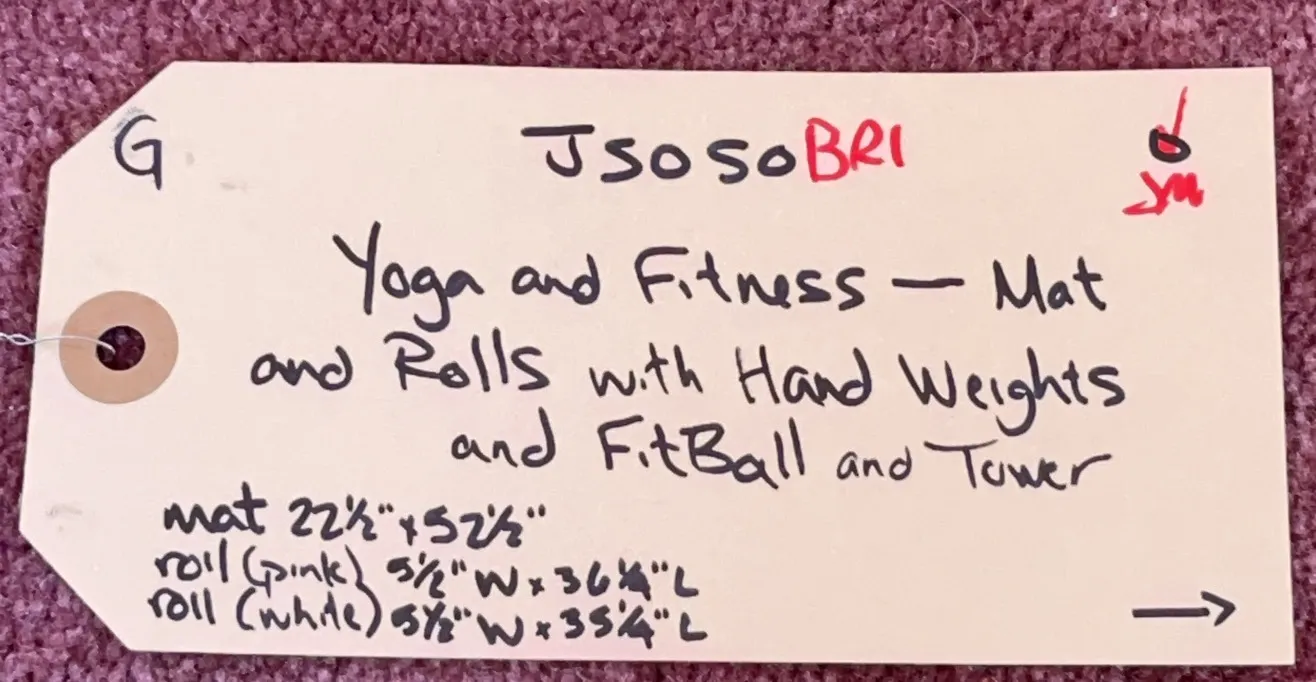 G
JSOSOBRI
JM
Yoga and Fitness — Mat
and Rolls with Hand Weights
and FitBall and Tower
mat 22½" x 52½"
roll (pink) 5½" W x 36¼" L
roll (white) 5½" W x 35¼" L